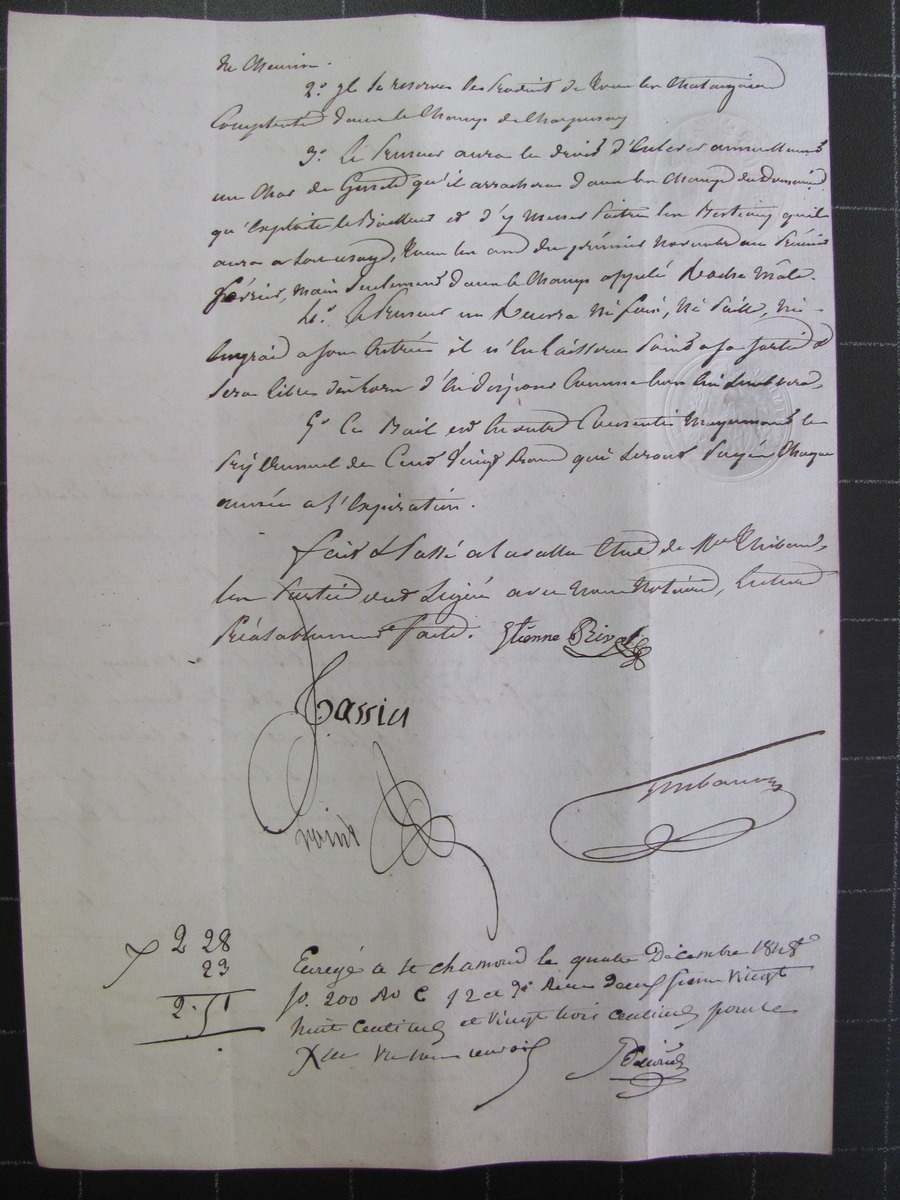 de Chemin.
2° Il se réserve les produits de tous les chataigniers
Complantés dans le champ de
3° Le preneur aura le droit d'enlever annuellement
un char de Genets qu'il arrachera dans les champs du Domaine
qu'exploite le Bailleur et d'y mener paitre les Bestiaux qu'il
aura a tous les ans du premier novembre au premier
février, mais seulement dans le champ appelé Roche
4° Le preneur ne recevra ni foin, ni paille, ni
engrais a son entrée il n'en laissera point a sa sortie et
sera libre d'en disposer comme bon lui semblera.
5° Ce Bail est en outre Consenti moyennant le
prix annuel de Cent vingt francs qui seront payés chaque
année a l'expiration.
fait & passé a la valla Etude de Me Thibaud,
les parties ont signé avec nous Notaires, lecture
Préalablement faite. Etienne Rival
Tassin
Thibaud
2 28
23
2.51
Enregé a St chamond le quatre Décembre 1848
fo. 200 Ro C 12 et Reçu deux francs vingt
huit centimes et vingt trois centimes pour le
Xme